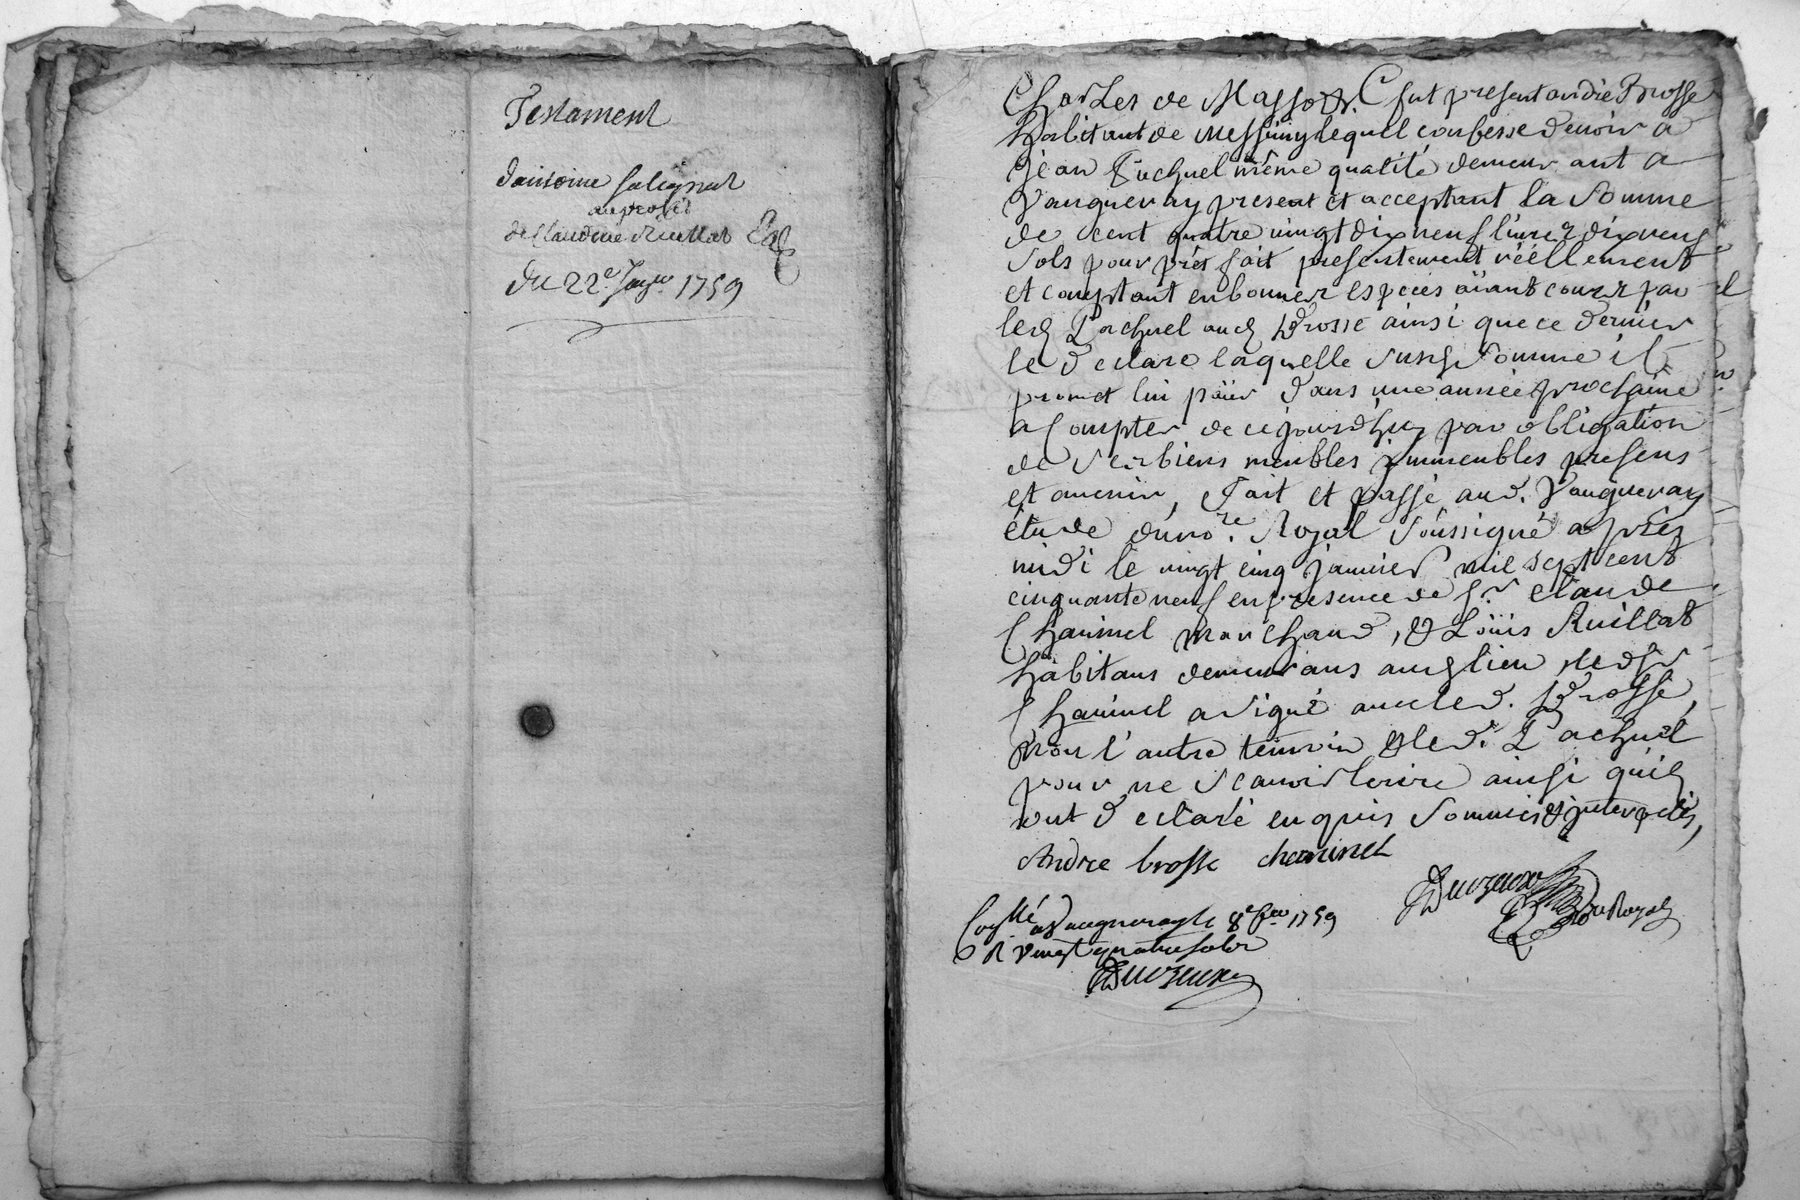 Testament
d'antoine Salignat
au profit
de Claudine Ruillat
Du 22e Janer 1759
Charles de Masso &c. fut present andré Brosse
habitant de Messimy lequel confesse devoir a
jean Pachuel même qualité demeurant a
Vaugneray present et acceptant la somme
de cent quatre vingt dix neuf livres dix neuf
sols pour prêt fait presentement réellement
et comptant en bonnes espèces aïant cours par
led Pachuel aud Brosse ainsi que ce dernier
le declare laquelle susd somme il
promet lui païer dans une année prochaine
a compter de cejourdhuy par obligation
de ses biens meubles immeubles presens
et avenir, fait et passé aud. Vaugneray
étude du no.re Royal soussigné après
midi le vingt cinq janvier mil sept cent
cinquante neuf en presence de Sr. Claude
Chaninel marchand, & Loüis Ruillat
habitans demeurans aud lieu led Sr
Chaninel a signé avec led. Brosse,
non l'autre temoin & led. Pachuel
pour ne scavoir écrire ainsi qu'ils
ont declaré enquis sommés & interpellés,
Andre brosse chaninel
Conllé a Vaugneray le 8e fer 1759
R vingt quatre sols